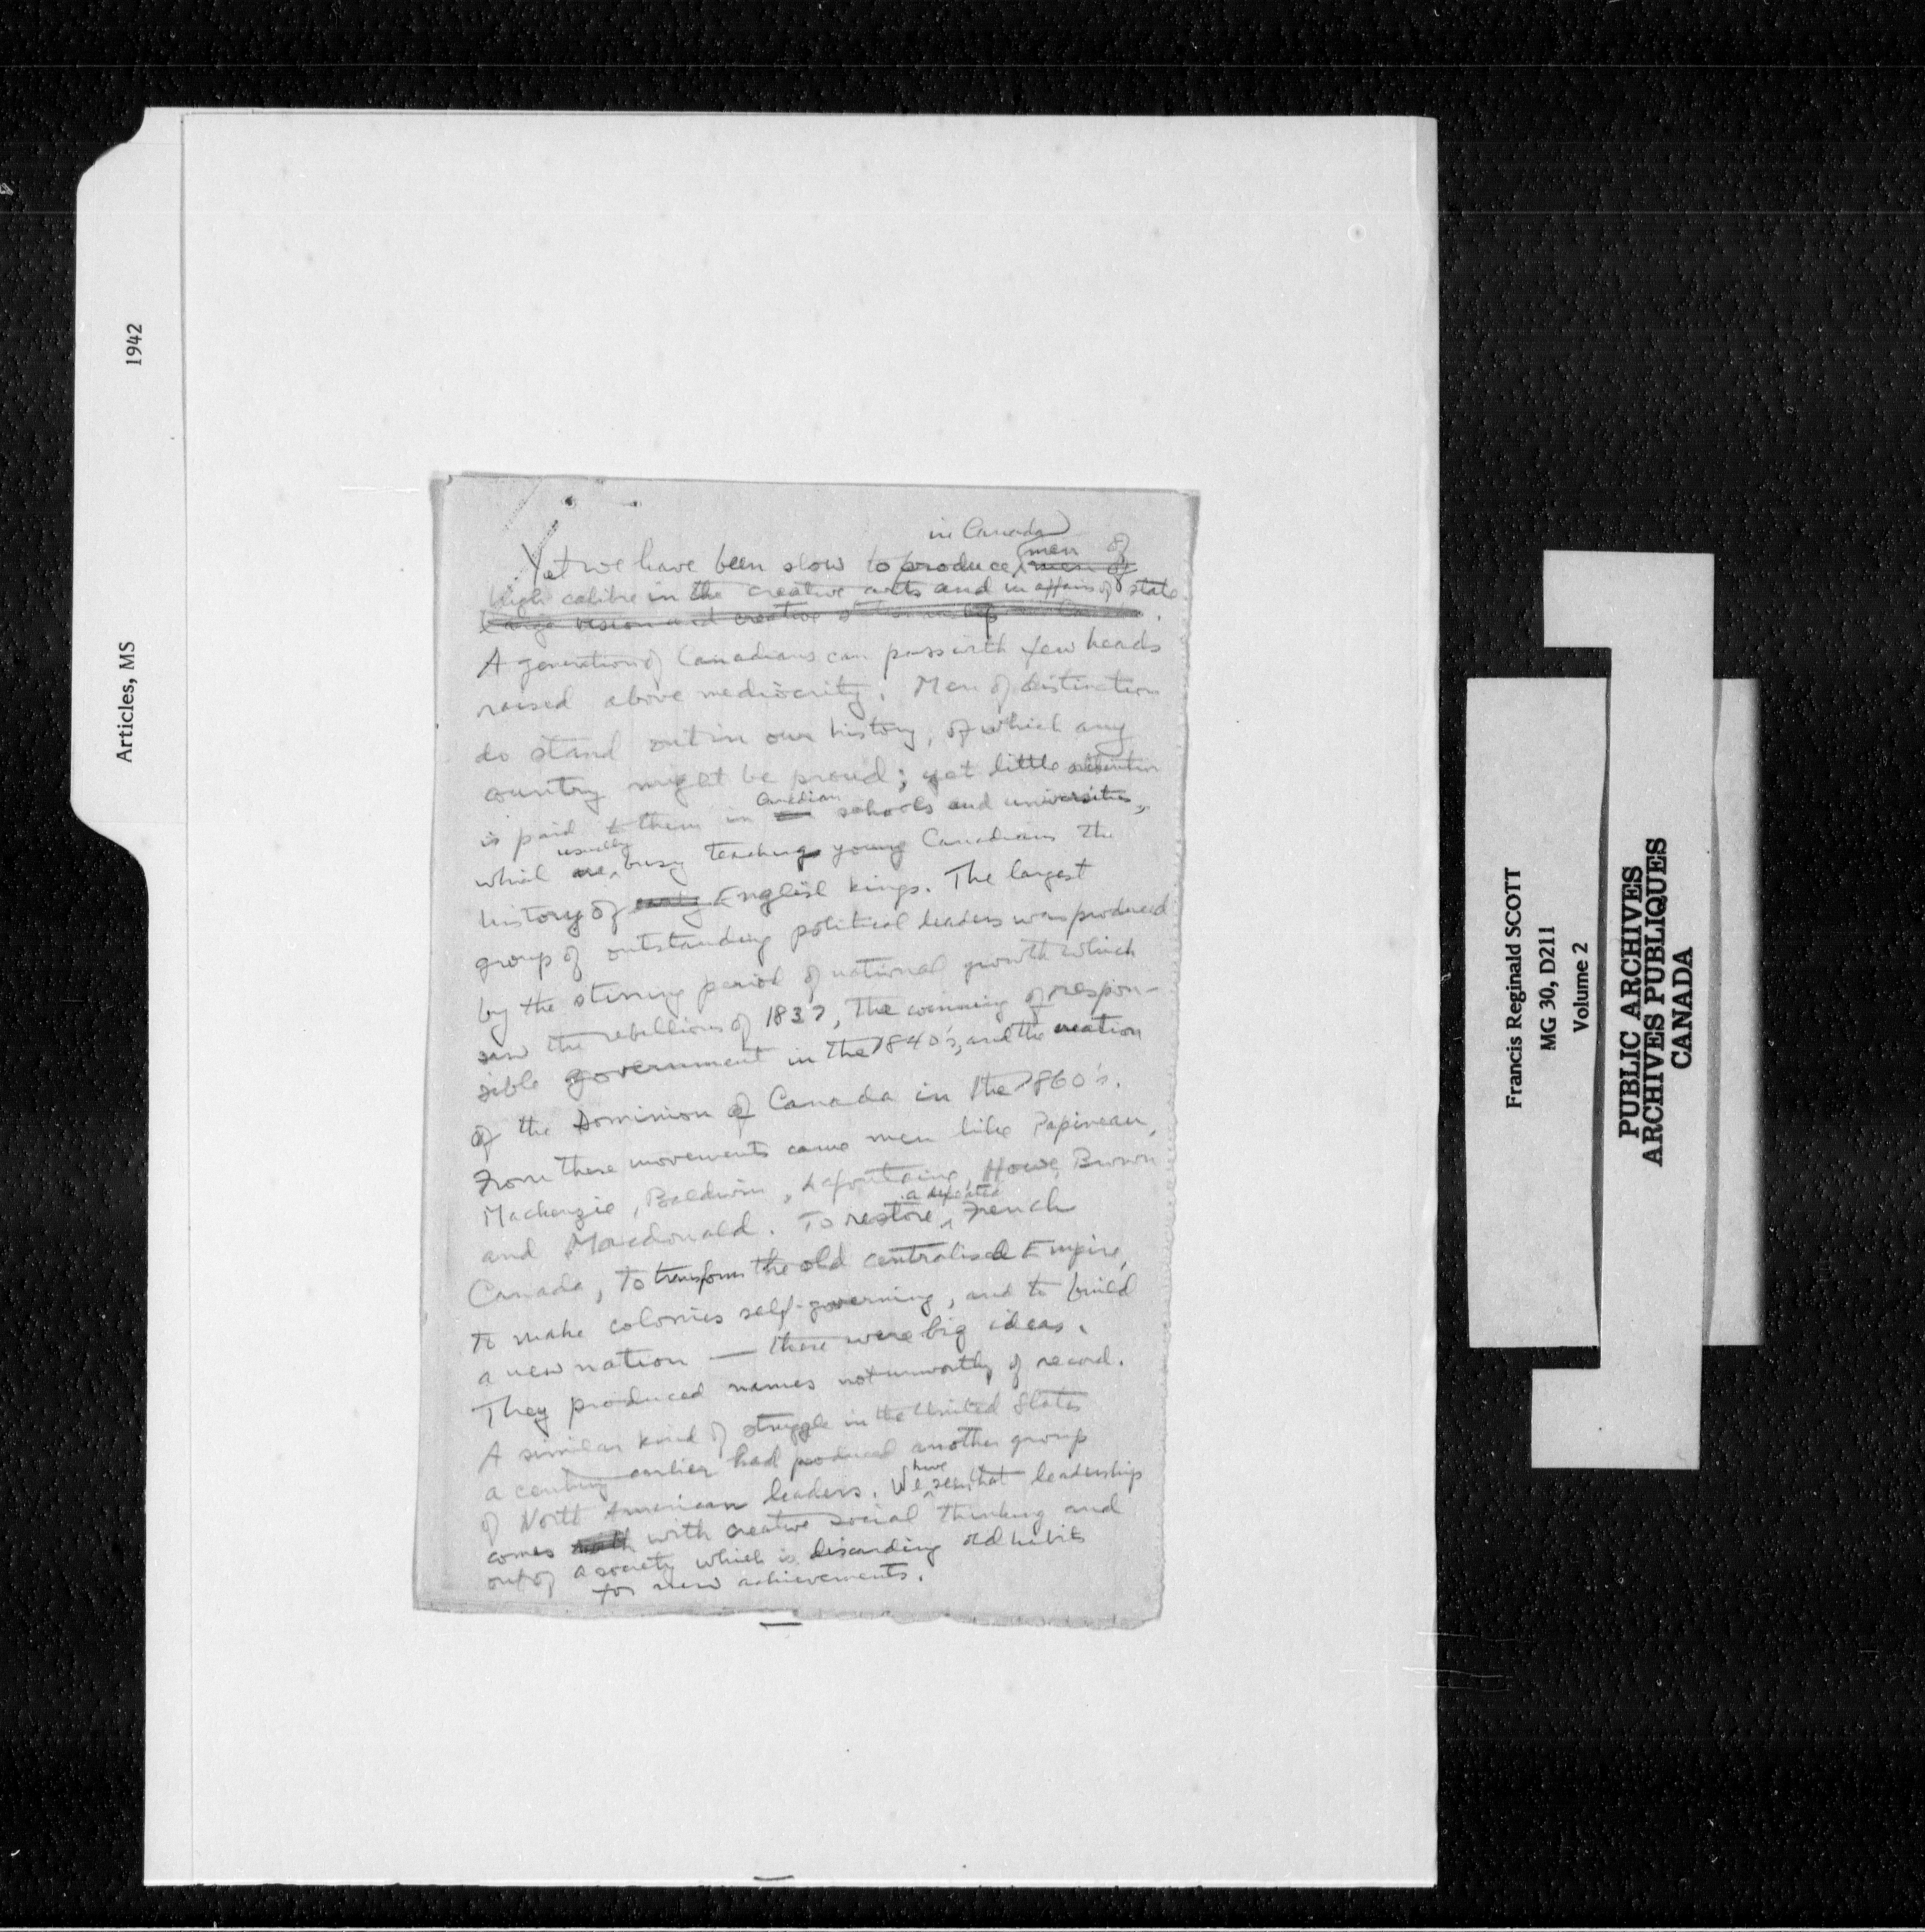 1942
Articles, MS
in Canada
Yet we have been slow to produce men of
men of
high calibre in the creative arts and in affairs of state.
large vision and creative
A generation of Canadians can pass with few heads
raised above mediocrity. Men of distinction
do stand out in our history, of which any
country might be proud; yet little attention
is paid to them in Canadian schools and universities,
which are usually busy teaching young Canadians the
history of early English kings. The largest
group of outstanding political leaders was produced
by the stirring period of national growth which
saw the rebellions of 1837, the winning of respon-
sible government in the 1840's, and the creation
of the Dominion of Canada in the 1860's.
From these movements came men like Papineau,
Mackenzie, Baldwin, Lafontaine, Howe, Brown
and Macdonald. To restore a defeated French
Canada, to transform the old centralised Empire,
to make colonies self-governing, and to build
a new nation — these were big ideas.
They produced names not unworthy of record.
A similar kind of struggle in the United States
a century earlier had produced another group
of North American leaders. We have seen that leadership
comes with creative social thinking and
out of a society which is discarding old habits
for new achievements.
Francis Reginald SCOTT
MG 30, D211
Volume 2
PUBLIC ARCHIVES
ARCHIVES PUBLIQUES
CANADA